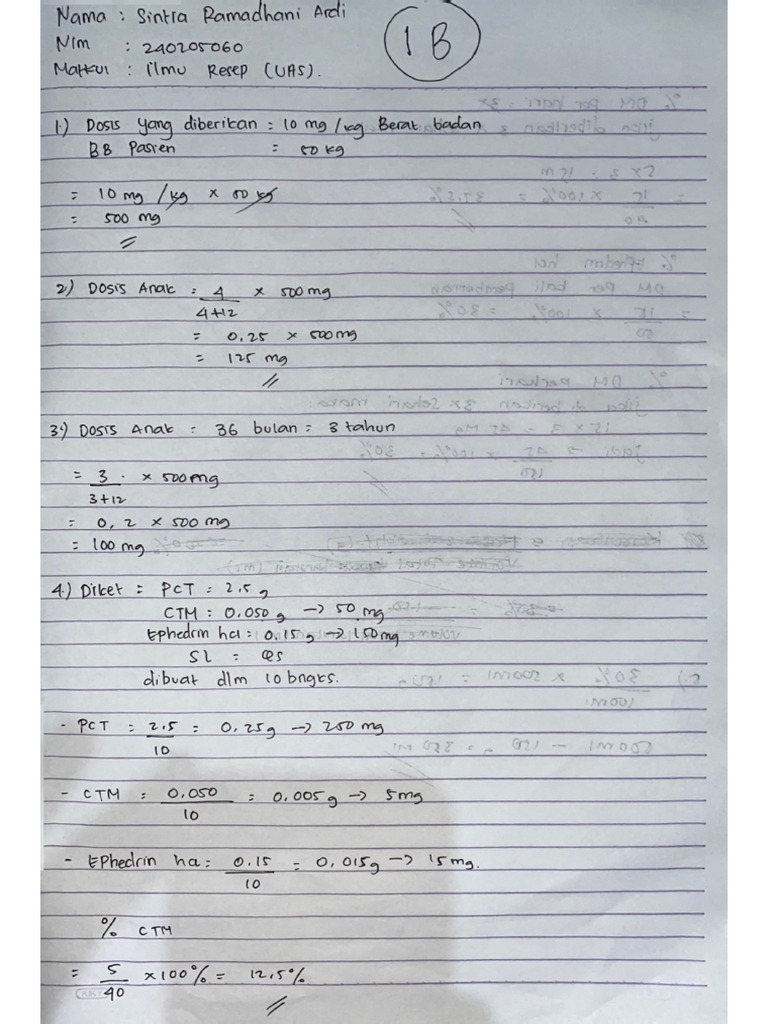 Nama : Sintra Ramadhani Ardi
Nim : 240205060
Matkul : ilmu Resep (UAS).
1B
1.) Dosis yang diberikan = 10 mg/kg Berat badan
BB Pasien = 50 kg
= 10 mg/kg x 50 kg
= 500 mg
2) Dosis Anak = 4/4+12 x 500 mg
= 0,25 x 500 mg
= 125 mg
3.) Dosis Anak = 36 bulan = 3 tahun
= 3/3+12 x 500 mg
= 0,2 x 500 mg
= 100 mg
4.) Diket = PCT = 2.5 g
CTM = 0.050 g → 50 mg
Ephedrin hcl = 0.15 g → 150 mg
SL = qs
dibuat dlm 10 bngks.
- PCT = 2.5/10 = 0,25 g → 250 mg
- CTM = 0,050/10 = 0.005 g → 5 mg
- Ephedrin ha = 0.15/10 = 0,015 g → 15 mg.
% CTM
= 5/40 x 100% = 12,5%